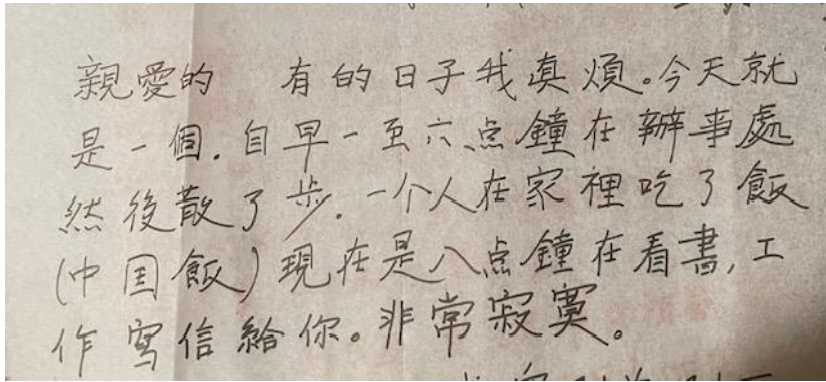 親愛的 有的日子我真煩。今天就
是一個.自早一至六点鐘在辦事處
然後散了步.一个人在家裡吃了飯
(中国飯)現在是八点鐘在看書,工
作寫信給你。非常寂寞。